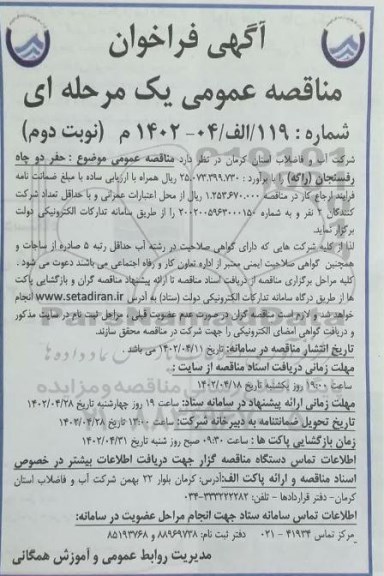 آگهی فراخوان
مناقصه عمومی یک مرحله ای
شماره : ۱۱۹/الف/۰۴- ۱۴۰۲ م (نوبت دوم)
شرکت آب و فاضلاب استان کرمان در نظر دارد مناقصه عمومی موضوع : حفر دو چاه
رفسنجان (راگه) را با برآورد : ۲۵،۰۷۳،۳۹۹،۷۳۰ ریال همراه با ارزیابی ساده با مبلغ ضمانت نامه
فرآیند ارجاع کار در مناقصه ۱،۲۵۳،۶۷۰،۰۰۰ ریال از محل اعتبارات عمرانی و با حداقل تعداد شرکت
کنندگان ۲ نفر و به شماره ۲۰۰۲۰۰۵۹۶۳۰۰۰۱۵۰ را از طریق سامانه تدارکات الکترونیکی دولت
برگزار نماید.
لذا از کلیه شرکت هایی که دارای گواهی صلاحیت در رشته آب حداقل رتبه ۵ صادره از ساجات و
همچنین گواهی صلاحیت ایمنی معتبر از اداره تعاون کار و رفاه اجتماعی می باشند دعوت می شود .
کلیه مراحل برگزاری مناقصه از دریافت اسناد مناقصه تا ارائه پیشنهاد مناقصه گران و بازگشایی پاکت
ها از طریق درگاه سامانه تدارکات الکترونیکی دولت (ستاد) به آدرس www.setadiran.ir انجام
خواهد شد و لازم است مناقصه گران در صورت عدم عضویت قبلی ، مراحل ثبت نام در سایت مذکور
و دریافت گواهی امضای الکترونیکی را جهت شرکت در مناقصه محقق سازند.
تاریخ انتشار مناقصه در سامانه: تاریخ ۱۴۰۲/۰۴/۱۱ می باشد
مهلت زمانی دریافت اسناد مناقصه از سایت :
ساعت ۱۹:۰۰ روز یکشنبه تاریخ ۱۴۰۲/۰۴/۱۸
مهلت زمانی ارائه پیشنهاد در سامانه ستاد: ساعت ۱۹ روز چهارشنبه تاریخ ۱۴۰۲/۰۴/۲۸
تاریخ تحویل ضمانتنامه به دبیرخانه شرکت: ساعت ۱۳:۰۰ تاریخ ۱۴۰۲/۰۴/۲۸
زمان بازگشایی پاکت ها : ساعت ۰۹:۳۰ صبح روز شنبه تاریخ ۱۴۰۲/۰۴/۳۱
اطلاعات تماس دستگاه مناقصه گزار جهت دریافت اطلاعات بیشتر در خصوص
اسناد مناقصه و ارائه پاکت الف:آدرس: کرمان بلوار ۲۲ بهمن شرکت آب و فاضلاب استان
کرمان- دفتر قراردادها - تلفن: ۳۳۳۲۲۲۲۸۲-۰۳۴
اطلاعات تماس سامانه ستاد جهت انجام مراحل عضویت در سامانه:
مرکز تماس ۴۱۹۳۴ - ۰۲۱ دفتر ثبت نام: ۸۸۹۶۹۷۳۸ و ۸۵۱۹۳۷۶۸
مدیریت روابط عمومی و آموزش همگانی